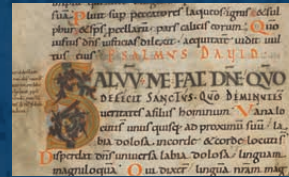 sua. Pluit sup peccatores laqueos ignis & sul
phur & sps pcellarū pars calicis eorum. Quo
iustus dns & iusticias dilexit. equitatē uidit uul
tus eius PSALMVS DAVID.
SALVV ME FAC DNE QVO
DEFECIT SANCTVS. QVO DEMINVTE S
ueritates a filiis hominum. Vana lo
cuti st unusquisq; ad proximū suū. la
bia dolosa. incorde & corde locuti st
Disperdat dns uniuersa labia dolosa. linguam
magniloquā. Qui dixer linguā nrām mag